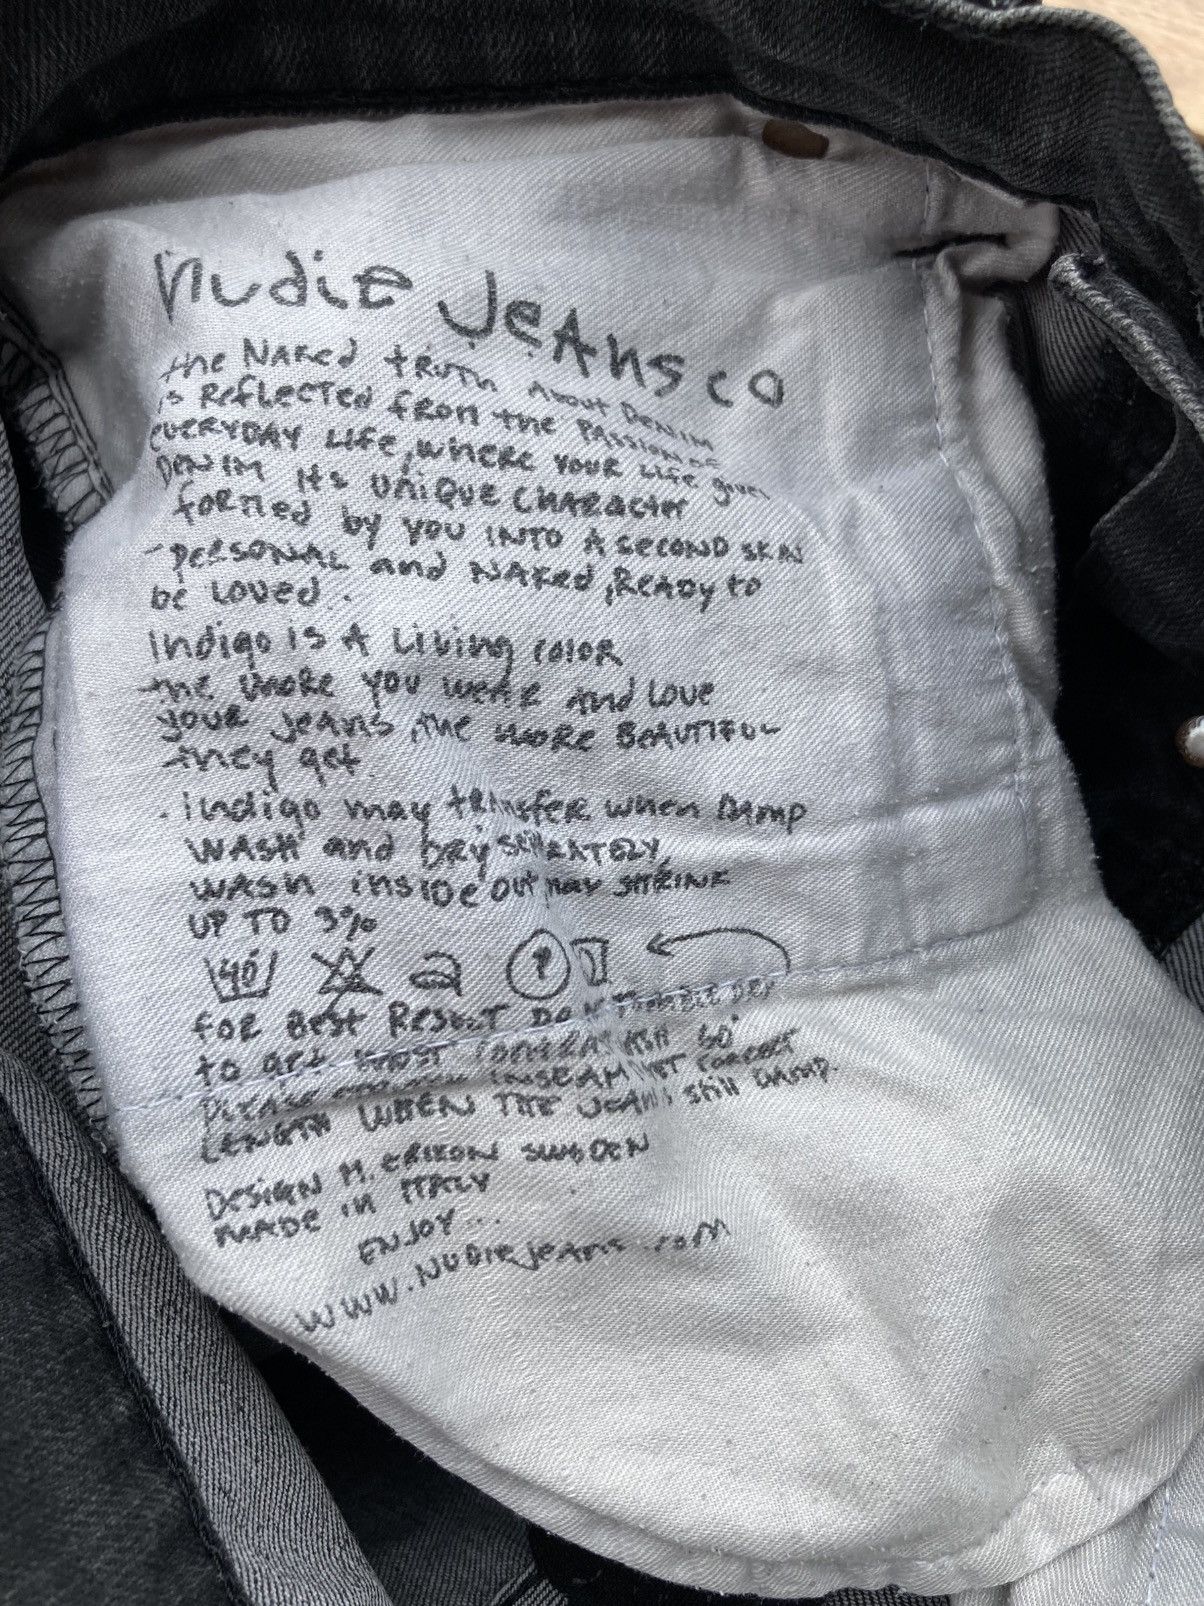 Nudie Jeans co
the NAKed tRUTH About DENIM
is Reflected from the PASSION OF
EVERYDAY LIFE, where YOUR LIFE gives
DENIM its UNIQUE CHARACTER
formed by YOU INTO A SECOND SKIN
- PERSONAL and NAKed, READY to
be LOVED.
Indigo IS A Living COLOR
the more you wear and Love
your jeans, the more BEAUTIFUL
they get.
. indigo may transfer when Damp
WASH and DRY SEPERATELY,
WASH inside out may SHRINK
UP TO 3%
40 P
FOR Best Result DO NOT Tumble DRY
to get most contrast WASH 60°
PLEASE INSEAM
LENGTH WHEN THE Jean is still DAMP.
DESIGN M. ERIXON SWEDEN
MADE in ITALY
ENJOY...
www.NUDIEjeans.com